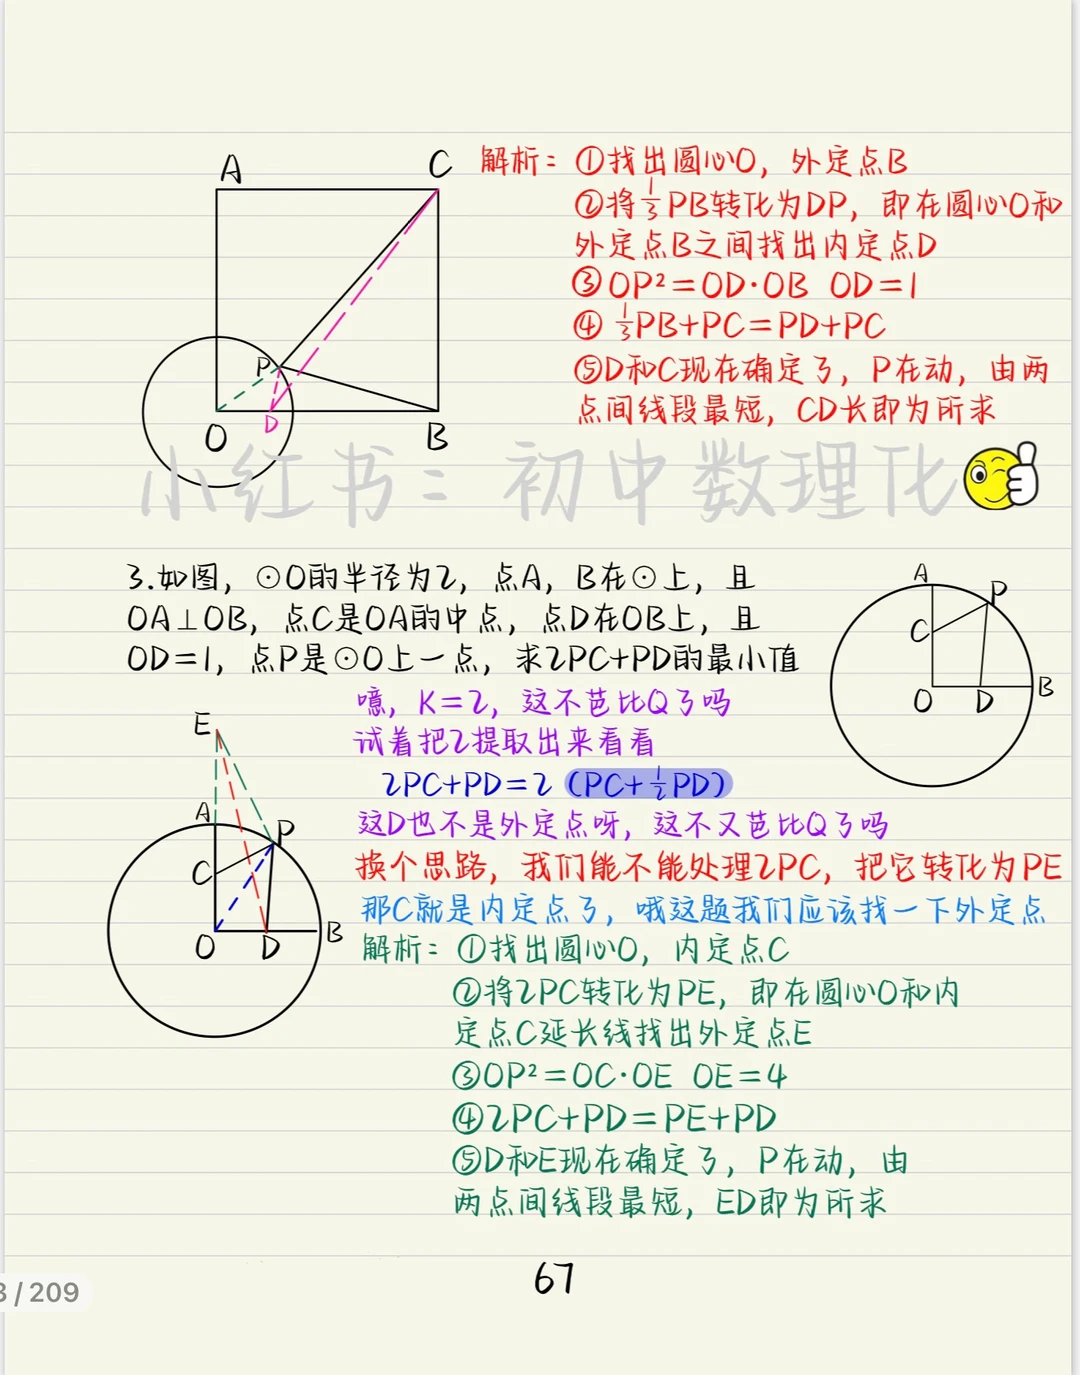 A
C
P
D
O
B
解析：①找出圆心O，外定点B
②将1/3PB转化为DP，即在圆心O和
外定点B之间找出内定点D
③OP²=OD·OB OD=1
④1/3PB+PC=PD+PC
⑤D和C现在确定了，P在动，由两
点间线段最短，CD长即为所求
小红书：初中数理化
3.如图，⊙O的半径为2，点A，B在⊙上，且
OA⊥OB，点C是OA的中点，点D在OB上，且
OD=1，点P是⊙O上一点，求2PC+PD的最小值
A
P
C
O
D
B
噫，K=2，这不芭比Q了吗
试着把2提取出来看看
2PC+PD=2（PC+1/2PD）
这D也不是外定点呀，这不又芭比Q了吗
换个思路，我们能不能处理2PC，把它转化为PE
那C就是内定点了，哦这题我们应该找一下外定点
E
A
P
C
O
D
B
解析：①找出圆心O，内定点C
②将2PC转化为PE，即在圆心O和内
定点C延长线找出外定点E
③OP²=OC·OE OE=4
④2PC+PD=PE+PD
⑤D和E现在确定了，P在动，由
两点间线段最短，ED即为所求
67
3/209